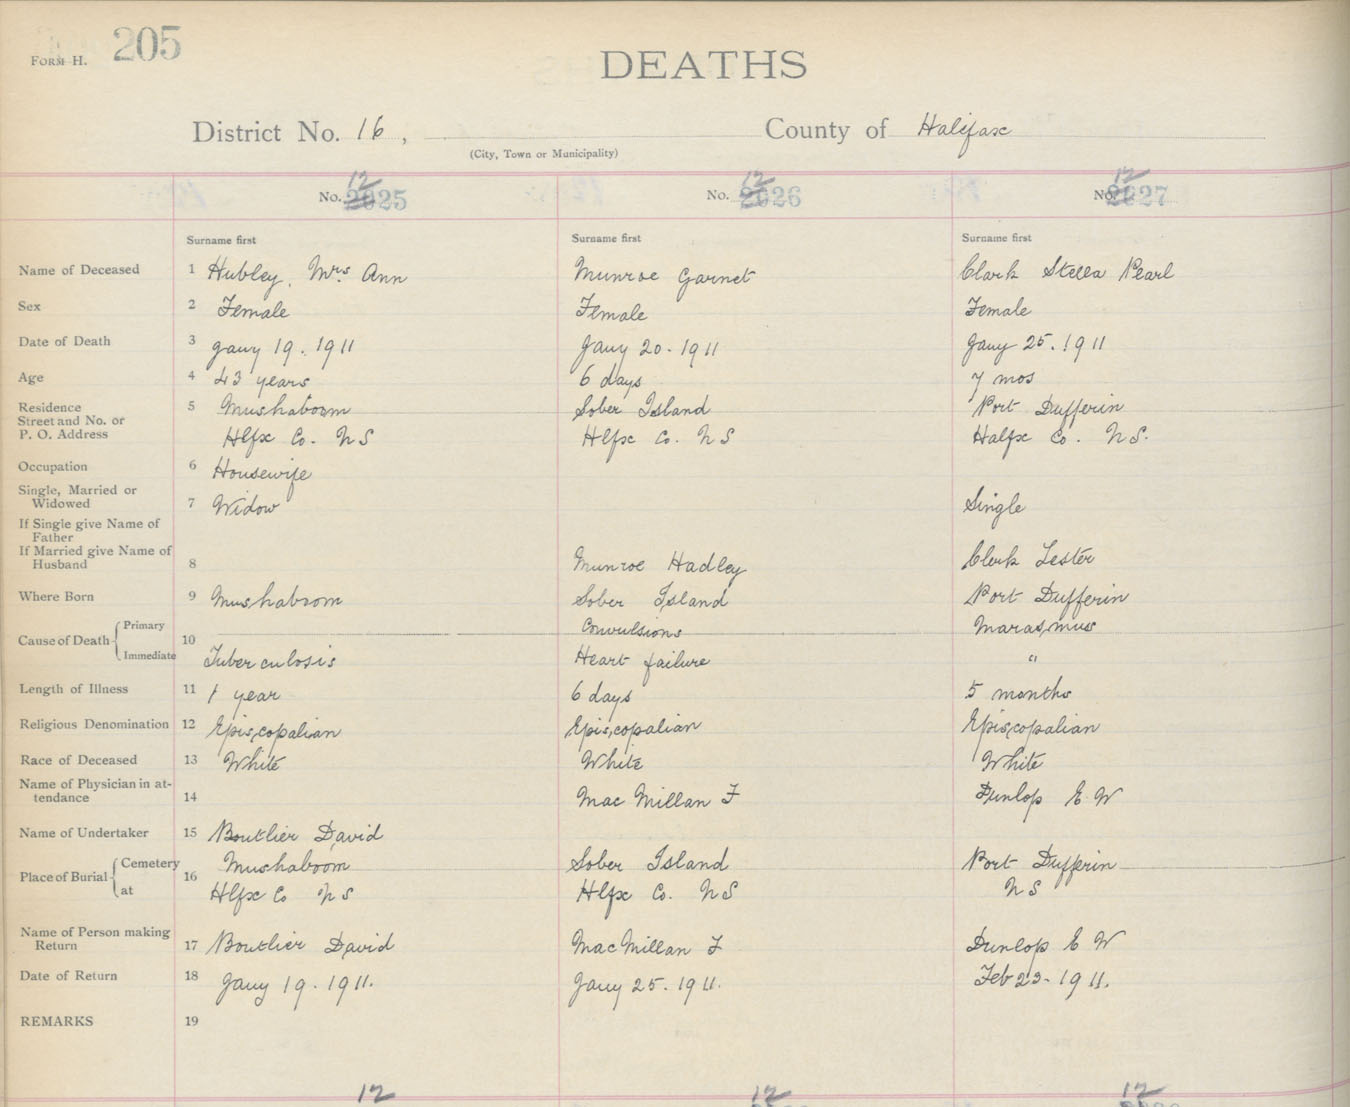 FORM H. 205
DEATHS
District No. 16, County of Halifax
(City, Town or Municipality)
12 12 12
No. 2025 No. 2026 No. 2027
Surname first Surname first Surname first
Name of Deceased 1 Hubley, Mrs. Ann Munroe Garnet Clark Stella Pearl
Sex 2 Female Female Female
Date of Death 3 Jany 19. 1911 Jany 20. 1911 Jany 25. 1911
Age 4 43 years 6 days 7 mos
Residence 5 Mushaboom Sober Island Port Dufferin
Street and No. or
P. O. Address Hlfx Co. N S Hlfx Co. N S Halfx Co. N S.
Occupation 6 Housewife
Single, Married or
Widowed 7 Widow Single
If Single give Name of
Father
If Married give Name of
Husband 8 Munroe Hadley Clark Lester
Where Born 9 Mushaboom Sober Island Port Dufferin
Primary Convulsions Marasmus
Cause of Death 10
Immediate Tuberculosis Heart failure "
Length of Illness 11 1 year 6 days 5 months
Religious Denomination 12 Episcopalian Episcopalian Episcopalian
Race of Deceased 13 White White White
Name of Physician in at-
tendance 14 Mac Millan F Dunlop E W
Name of Undertaker 15 Boutlier David
Cemetery Mushaboom Sober Island Port Dufferin
Place of Burial 16
at Hlfx Co N S Hlfx Co. N S N S
Name of Person making
Return 17 Boutlier David MacMillan F Dunlop E W
Date of Return 18 Jany 19. 1911. Jany 25. 1911. Feb 23. 1911.
REMARKS 19
12 12 12